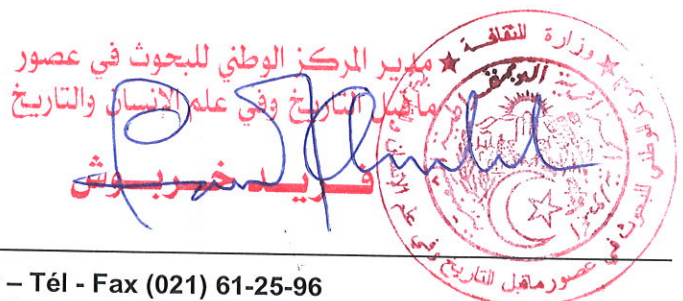 مدير المركز الوطني للبحوث في عصور
ماقبل التاريخ وفي علم الإنسان والتاريخ
فريد خربوش
وزارة الثقافة
عصور ماقبل التاريخ وفي علم الإنسان
– Tél - Fax (021) 61-25-96